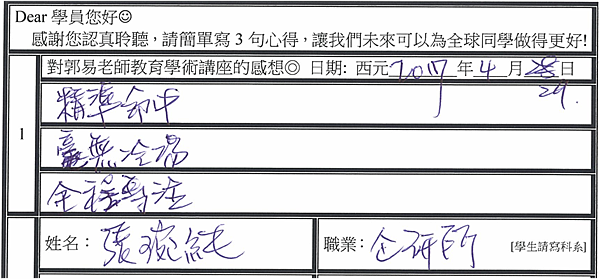 Dear 學員您好☺
感謝您認真聆聽，請簡單寫 3 句心得，讓我們未來可以為全球同學做得更好!
對郭易老師教育學術講座的感想◎ 日期: 西元2017年4月29日
1
精準命中
毫無冷場
全程專注
姓名：張琬純 職業：企研所 [學生請寫科系]